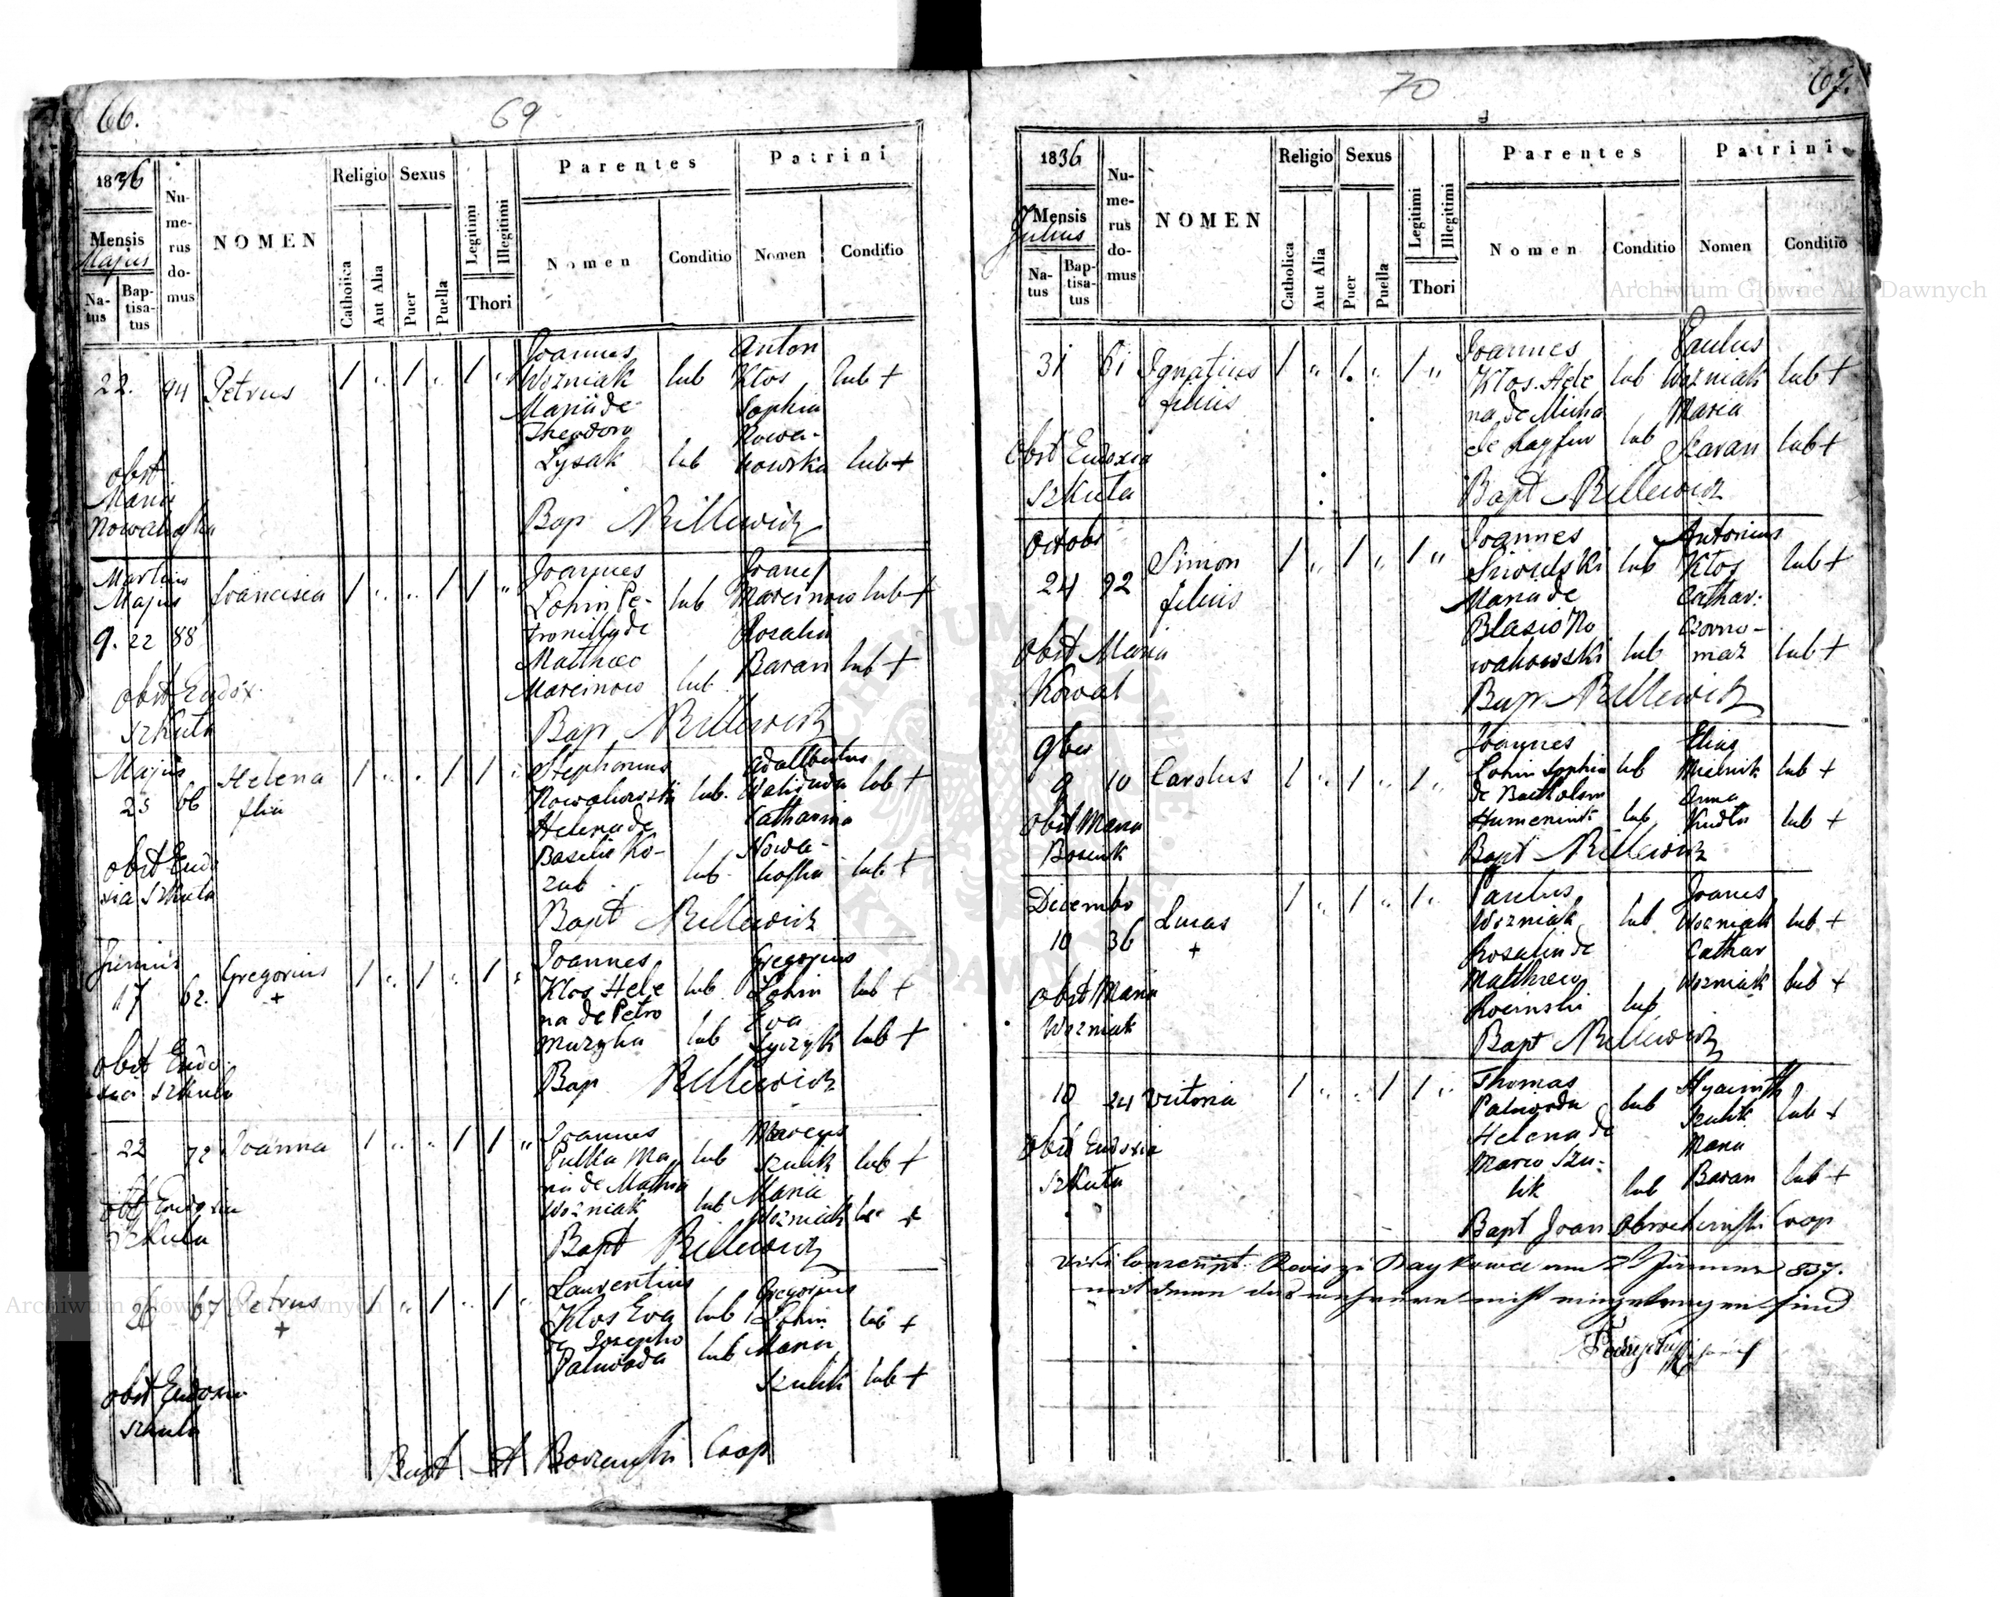 66.
69
1836
Mensis
Majus
Na-
tus
Bap-
tisa-
tus
Nu-
me-
rus
do-
mus
NOMEN
Religio
Catholica
Aut Alia
Sexus
Puer
Puella
Legitimi
Illegitimi
Thori
Parentes
Nomen
Conditio
Patrini
Nomen
Conditio
22. 94 Petrus 1 " 1 " 1 "
Joannes
Wozniak lub
Maria de
Theodoro
Lysak lub
Anton
Klos lub +
Sophia
Nowa-
kowska lub +
obst
Maria
Nowakofska
Bap Rillewicz
Martius
Majus
9. 22 88 Francisca 1 " " 1 1 "
Joannes
Lohin Pe- lub
tronilla de
Matthaeo
Marcinow lub
Joanes
Marcinow lub +
Rosalia
Baran lub +
obst Eudox.
Szkuta
Bap Rillewicz
Majus
25 66 Helena 1 " " 1 1 "
filia
Stephanus
Nowakowski lub.
Helena de
Basilio Ko-
zub lub
Adalbertus
lub +
Catharina
Nowa-
kofska lub +
obst Eudo
xia Szkuta
Bapt Rillewicz
Junius
17 62. Gregorius 1 " 1 " 1 "
+
Joannes
Klos Hele lub
na de Petro
Muzyka lub
Gregorius
Lohin lub +
Eva
Lyczyk lub +
obst Eudo
xia Szkuta
Bap Rillewicz
22 72 Joanna 1 " " 1 1 "
Joannes
Pulka Ma lub
ria de Mathia
Wozniak lub
Marcus
Szulik lub +
Maria
Wozniak lub +
obst Eudoxia
Szkuta
Bapt Rillewicz
26 67 Petrus 1 " 1 " 1 "
+
Laurentius
Klos Eva lub
de Josepho
Paluroda lub
Gregorius
Lohin lub +
Maria
Szulik lub +
obst Eudoxia
Szkuta
Bapt Coop
70
67.
1836
Mensis
Julius
Na-
tus
Bap-
tisa-
tus
Nu-
me-
rus
do-
mus
NOMEN
Religio
Catholica
Aut Alia
Sexus
Puer
Puella
Legitimi
Illegitimi
Thori
Parentes
Nomen
Conditio
Patrini
Nomen
Conditio
31 61 Ignatius 1 " 1. " 1 "
filius
Joannes
Klos Hele lub
na de Micha
ele lub
Paulus
Wozniak lub +
Maria
Baran lub +
Obst Eudoxia
Szkuta
Bapt Rillewicz
Octobr
24 92 Simon 1 " 1 " 1 "
filius
Joannes
lub
Maria de
Blasio No
wakowski lub
Antonius
Klos lub +
Cathar:
Czorno-
maz lub +
Obst Maria
Kowal
Bap Rillewicz
9ber
9 10 Carolus 1 " 1 " 1 "
Joannes
Lohin Sophia lub
de Bartholom
Humeniuk lub
Elias
Mielnik lub +
Anna
Kudla lub +
Obst Maria
Bosenk
Bapt Rillewicz
Decembr
10 36 Lucas 1 " 1 " 1 "
+
Paulus
Wozniak lub
Rosalia de
Matthaeo
Rocinski lub
Joanes
Wozniak lub +
Cathar
Wozniak lub +
obst Maria
Wozniak
Bapt Rillewicz
10 24 Victoria 1 " " 1 1 "
Thomas
Paluroda lub
Helena de
Marco Szu-
lik lub
Hyacinth
Szulik lub +
Maria
Baran lub +
Obst Eudoxia
Szkuta
Bapt Joan Coop
837.
sind
Archiwum Główne Akt Dawnych
Archiwum Główne Akt Dawnych